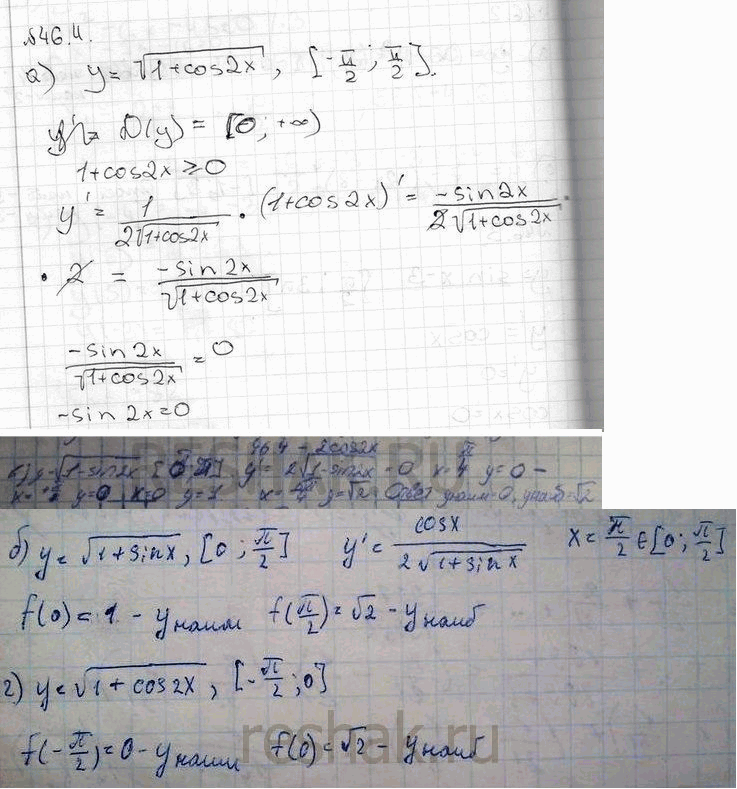 №46.4.
а) y = √(1+cos2x), [-π/2; π/2].
D(y) = [0; +∞)
1+cos2x ≥ 0
y' = 1/(2√(1+cos2x)) · (1+cos2x)' = -sin2x/(2√(1+cos2x)) ·
· 2 = -sin2x/√(1+cos2x)
-sin2x/√(1+cos2x) = 0
-sin2x=0
46.4 -2cos2x
y=√(1-sin2x) y' = 2√(1-sin2x) =0 x=π/4 y=0 -
y=0 x=0 y=1 y=√2 Ответ yнаим=0, yнаиб=√2
б) y = √(1+sinx), [0; π/2] y' = cosx/(2√(1+sinx)) x = π/2 ∈ [0; π/2]
f(0) = 1 - yнаим f(π/2) = √2 - yнаиб
г) y = √(1+cos2x), [-π/2; 0]
f(-π/2) = 0 - yнаим f(0) = √2 - yнаиб
RESHAK.RU
reshak.ru